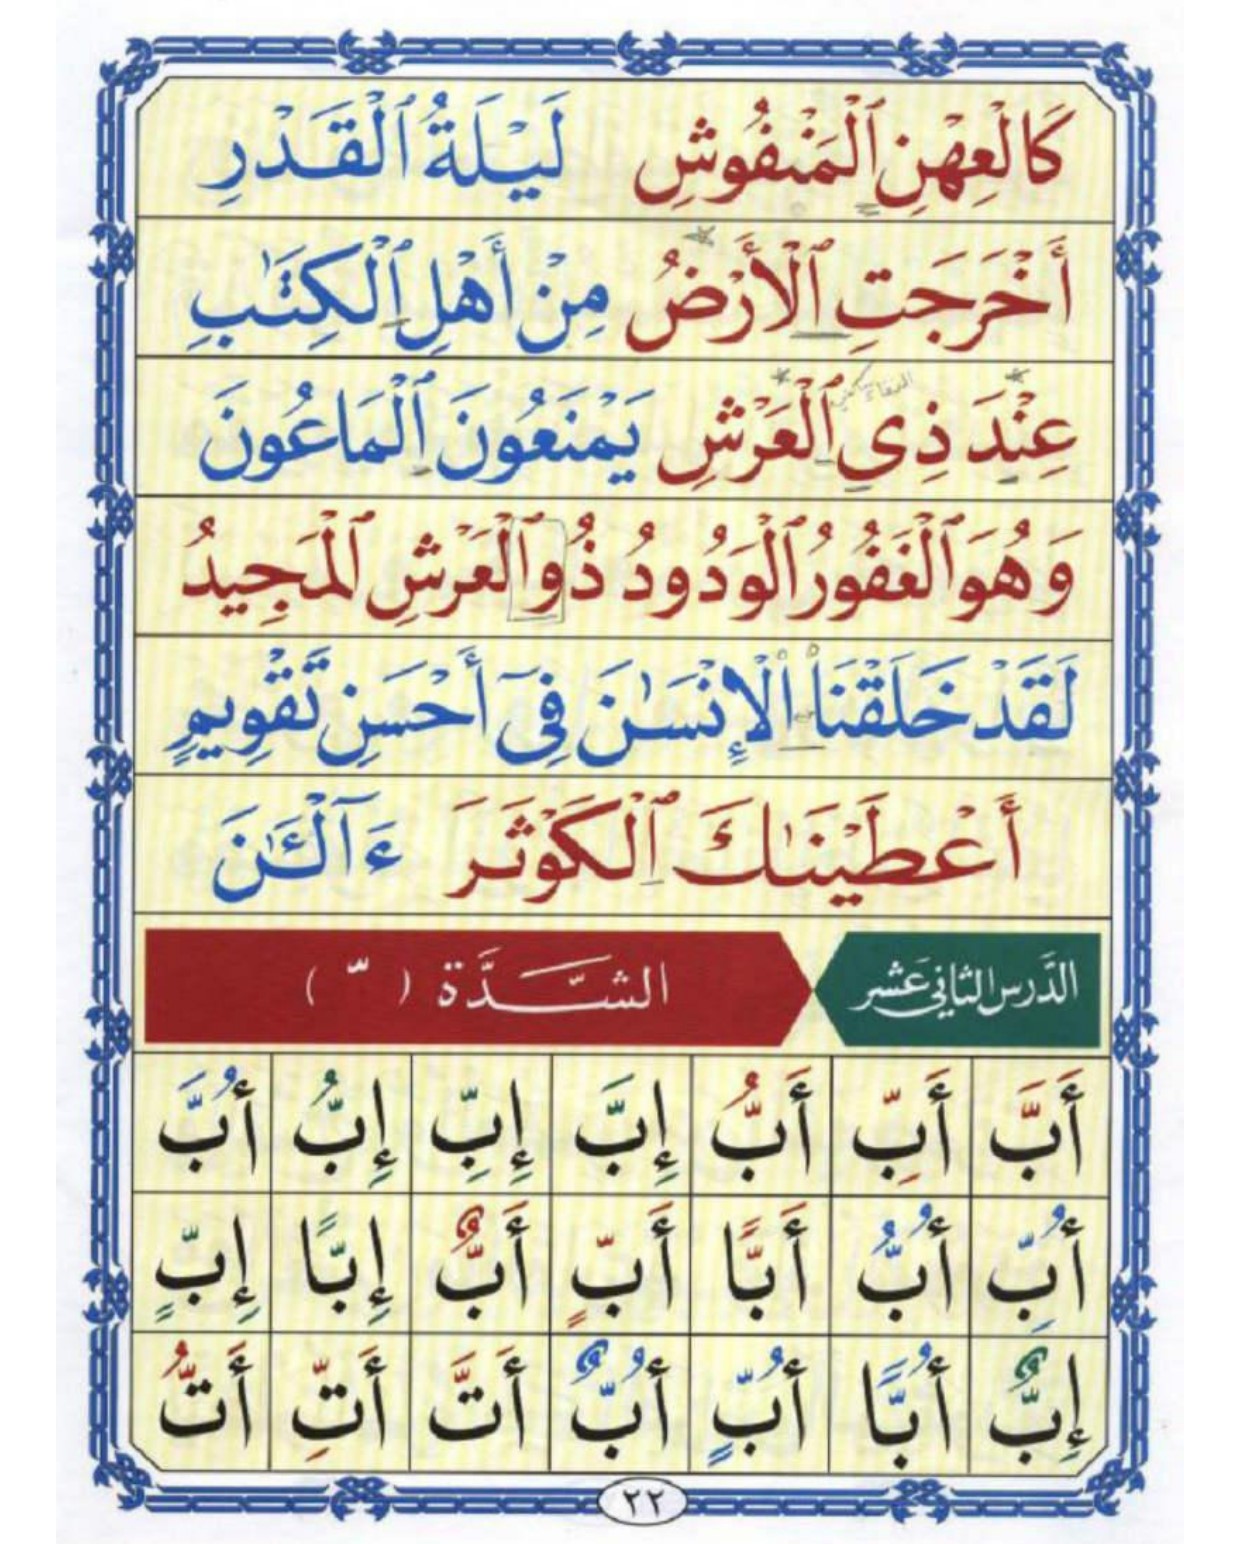 كَالْعِهْنِ ٱلْمَنْفُوشِ لَيْلَةُ ٱلْقَدْرِ
أَخْرَجَتِ ٱلْأَرْضُ مِنْ أَهْلِ ٱلْكِتَٰبِ
عِنْدَ ذِي ٱلْعَرْشِ يَمْنَعُونَ ٱلْمَاعُونَ
وَهُوَ ٱلْغَفُورُ ٱلْوَدُودُ ذُو ٱلْعَرْشِ ٱلْمَجِيدُ
لَقَدْ خَلَقْنَا ٱلْإِنْسَٰنَ فِىٓ أَحْسَنِ تَقْوِيمٍ
أَعْطَيْنَٰكَ ٱلْكَوْثَرَ ءَآلْـَٰٔنَ
الدَّرس الثاني عَشر الشَّدَّة ( ّ )
أَبَّ أَبِّ أَبُّ إِبَّ إِبِّ إِبُّ أُبَّ
أُبِّ أُبُّ أَبًّا أَبٍّ أَبٌّ إِبًّا إِبٍّ
إِبٌّ أُبًّا أُبٍّ أُبٌّ أَتَّ أَتِّ أَتُّ
٢٢